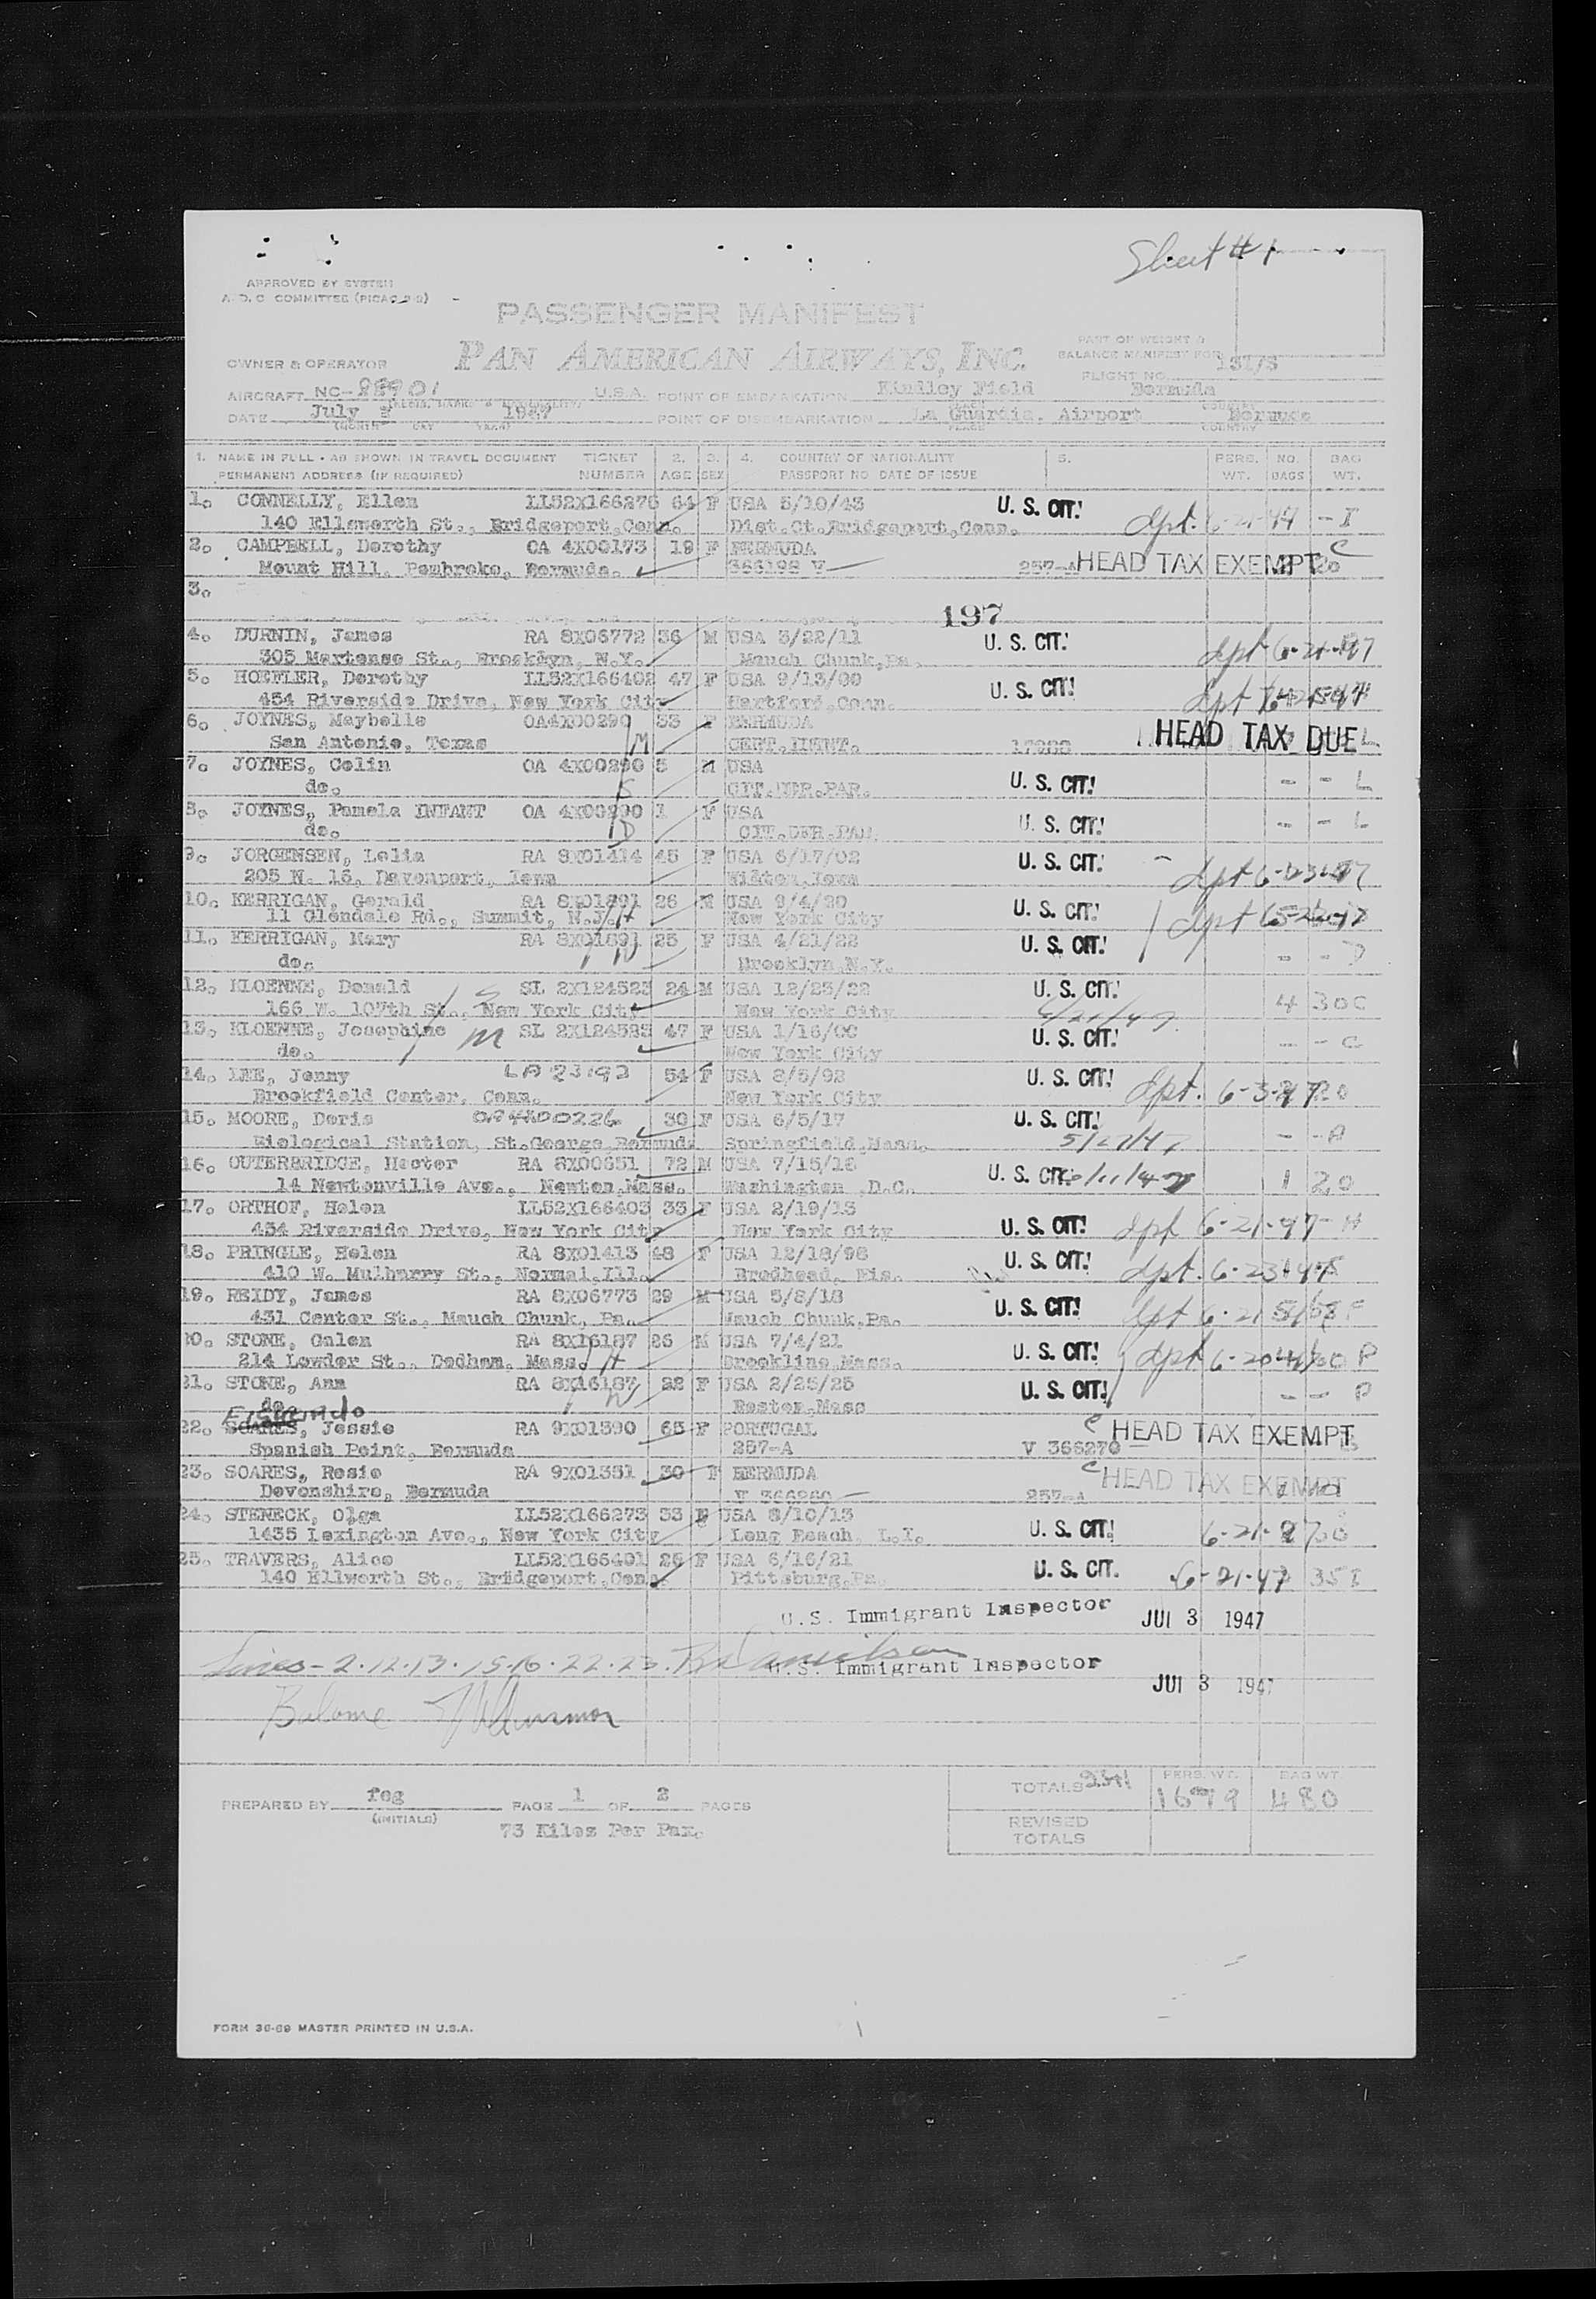 Sheet #1
APPROVED BY SYSTEM
A.D.C COMMITTEE
PASSENGER MANIFEST
PAN AMERICAN AIRWAYS, INC.
PART OF WEIGHT &
BALANCE MANIFEST FOR
OWNER & OPERATOR
FLIGHT NO. 131/3
AIRCRAFT NC- U.S.A. POINT OF EMBARKATION Kindley Field Bermuda
DATE July 3 1947 POINT OF DISEMBARKATION La Guardia. Airport
(MONTH DAY YEAR) PLACE COUNTRY
1. NAME IN FULL - AS SHOWN IN TRAVEL DOCUMENT TICKET 2. 3. 4. COUNTRY OF NATIONALITY 5. PERS. NO. BAG
PERMANENT ADDRESS (IF REQUIRED) NUMBER AGE SEX PASSPORT NO DATE OF ISSUE WT. BAGS WT.
1. CONNELLY, Ellen LL52X166276 64 F USA 5/10/43 U. S. CIT.
140 Ellsworth St., Bridgeport,Conn. Dist.Ct.Bridgeport,Conn. dpt.
2. CAMPBELL, Dorothy OA 4X00173 19 F BERMUDA C
Mount Hill, Pembroke, Bermuda. 366198 V 257-A HEAD TAX EXEMPT
3.
197
4. DURNIN, James RA 8X06772 36 M USA 3/22/11 U. S. CIT.
305 Martense St., Brooklyn, N.Y. Mauch Chunk,Pa. dpt 6-21-47
5. HOEFLER, Dorothy LL52X166402 47 F USA 9/13/00 U. S. CIT.
454 Riverside Drive, New York City Hartford,Conn. dpt
6. JOYNES, Maybelle OA4X00290 33 F BERMUDA
San Antonio, Texas M CERT.IDENT. HEAD TAX DUE L
7. JOYNES, Colin OA 4X00290 5 M USA U. S. CIT.
do. S CIT.DER.PAR. - - L
8. JOYNES, Pamela INFANT OA 4X00290 1 F USA U. S. CIT.
do. D CIT.DER.PAR. - - L
9. JORGENSEN, Lelia RA 8X01414 45 F USA 6/17/02 U. S. CIT.
205 N. 15, Davenport, Iowa dpt 6-23-47
10. KERRIGAN, Gerald RA 8X01891 26 M USA 9/4/20 U. S. CIT.
11 Glendale Rd., Summit, N.J. H New York City dpt
11. KERRIGAN, Mary RA 8X01891 25 F USA 4/21/22 U. S. CIT.
do. W Brooklyn,N.Y. - -
12. KLOENNE, Donald SL 2X124523 24 M USA 12/25/22 U. S. CIT.
166 W. 107th St., S New York City New York City 4 30 C
13. KLOENNE, Josephine M SL 2X124525 47 F USA 1/16/00 U. S. CIT.
do. New York City - - C
14. LEE, Jenny LA 23192 54 F USA 8/5/92 U. S. CIT.
Brookfield Center, Conn. New York City dpt.
15. MOORE, Doris OA4X00226 30 F USA 6/5/17 U. S. CIT.
Biological Station, St.George,Bermuda Springfield,Mass. 5/27/47 - - A
16. OUTERBRIDGE, Hector RA 8X00651 72 M USA 7/15/16 U. S. CIT. 6/11/47
14 Newtonville Ave., Newton,Mass. Washington ,D.C. 1 20
17. ORTHOF, Helen LL52X166403 33 F USA 2/19/13
454 Riverside Drive, New York City New York City U. S. CIT. dpt 6-21-47- H
18. PRINGLE, Helen RA 8X01413 48 F USA 12/18/98 U. S. CIT.
410 W. Mulberry St., Normal,Ill. Brodhead, Wis. dpt. 6-23-47
19. REIDY, James RA 8X06773 29 M USA 5/8/18 U. S. CIT.
431 Center St., Mauch Chunk, Pa. Mauch Chunk,Pa. dpt 6-21
20. STONE, Galen RA 8X16187 26 M USA 7/4/21 U. S. CIT.
214 Lowder St., Dedham, Mass. H Brookline,Mass. dpt 6-20 P
21. STONE, Ann RA 8X16187 22 F USA 2/25/25 U. S. CIT.
do. W Boston,Mass - - P
22. SOARES, Jessie RA 9X01390 65 F PORTUGAL C HEAD TAX EXEMPT
Spanish Point, Bermuda 257-A V 366270
23. SOARES, Rosie RA 9X01351 30 F BERMUDA C HEAD TAX EXEMPT
Devonshire, Bermuda 257-A
24. STENECK, Olga LL52X166273 33 F USA 8/10/13
1435 Lexington Ave., New York City Long Beach, L.I. U. S. CIT.
25. TRAVERS, Alice LL52X166401 26 F USA 6/16/21 U. S. CIT.
140 Ellworth St., Bridgeport,Conn. Pittsburg,Pa. 6-21-47 35 I
U.S. Immigrant Inspector JUL 3 1947
Lines - 2.12.13.15.16.22.23.
U.S. Immigrant Inspector
JUL 3 1947
Balance
PREPARED BY feg PAGE 1 OF 2 PAGES
(INITIALS)
73 Kilos Per Pax.
TOTALS PERS. WT. BAG WT
1679 480
REVISED
TOTALS
FORM 36-69 MASTER PRINTED IN U.S.A.